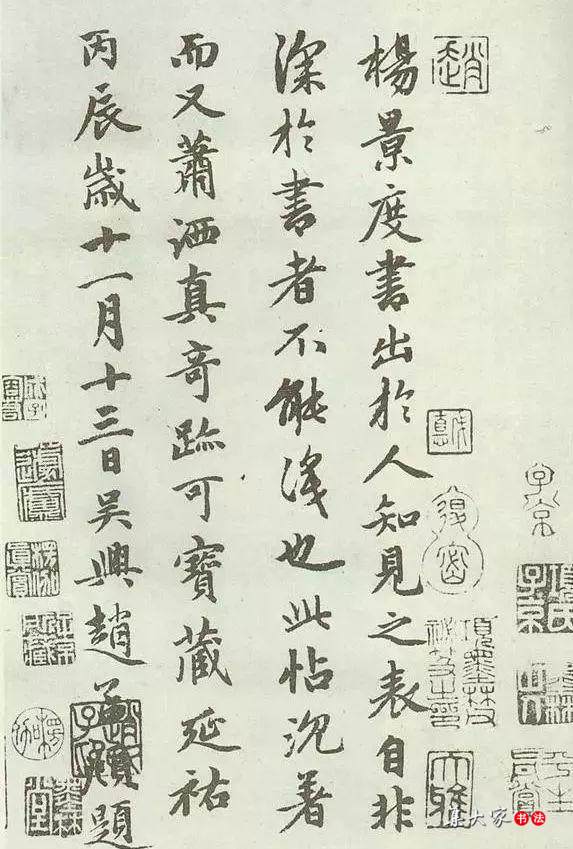 楊景度書出於人知見之表自非
深於書者不能淺也此帖沉著
而又蕭洒真奇跡可寶藏延祐
丙辰歲十一月十三日吳興趙孟頫題
趙
子京
大雅
集大家书法